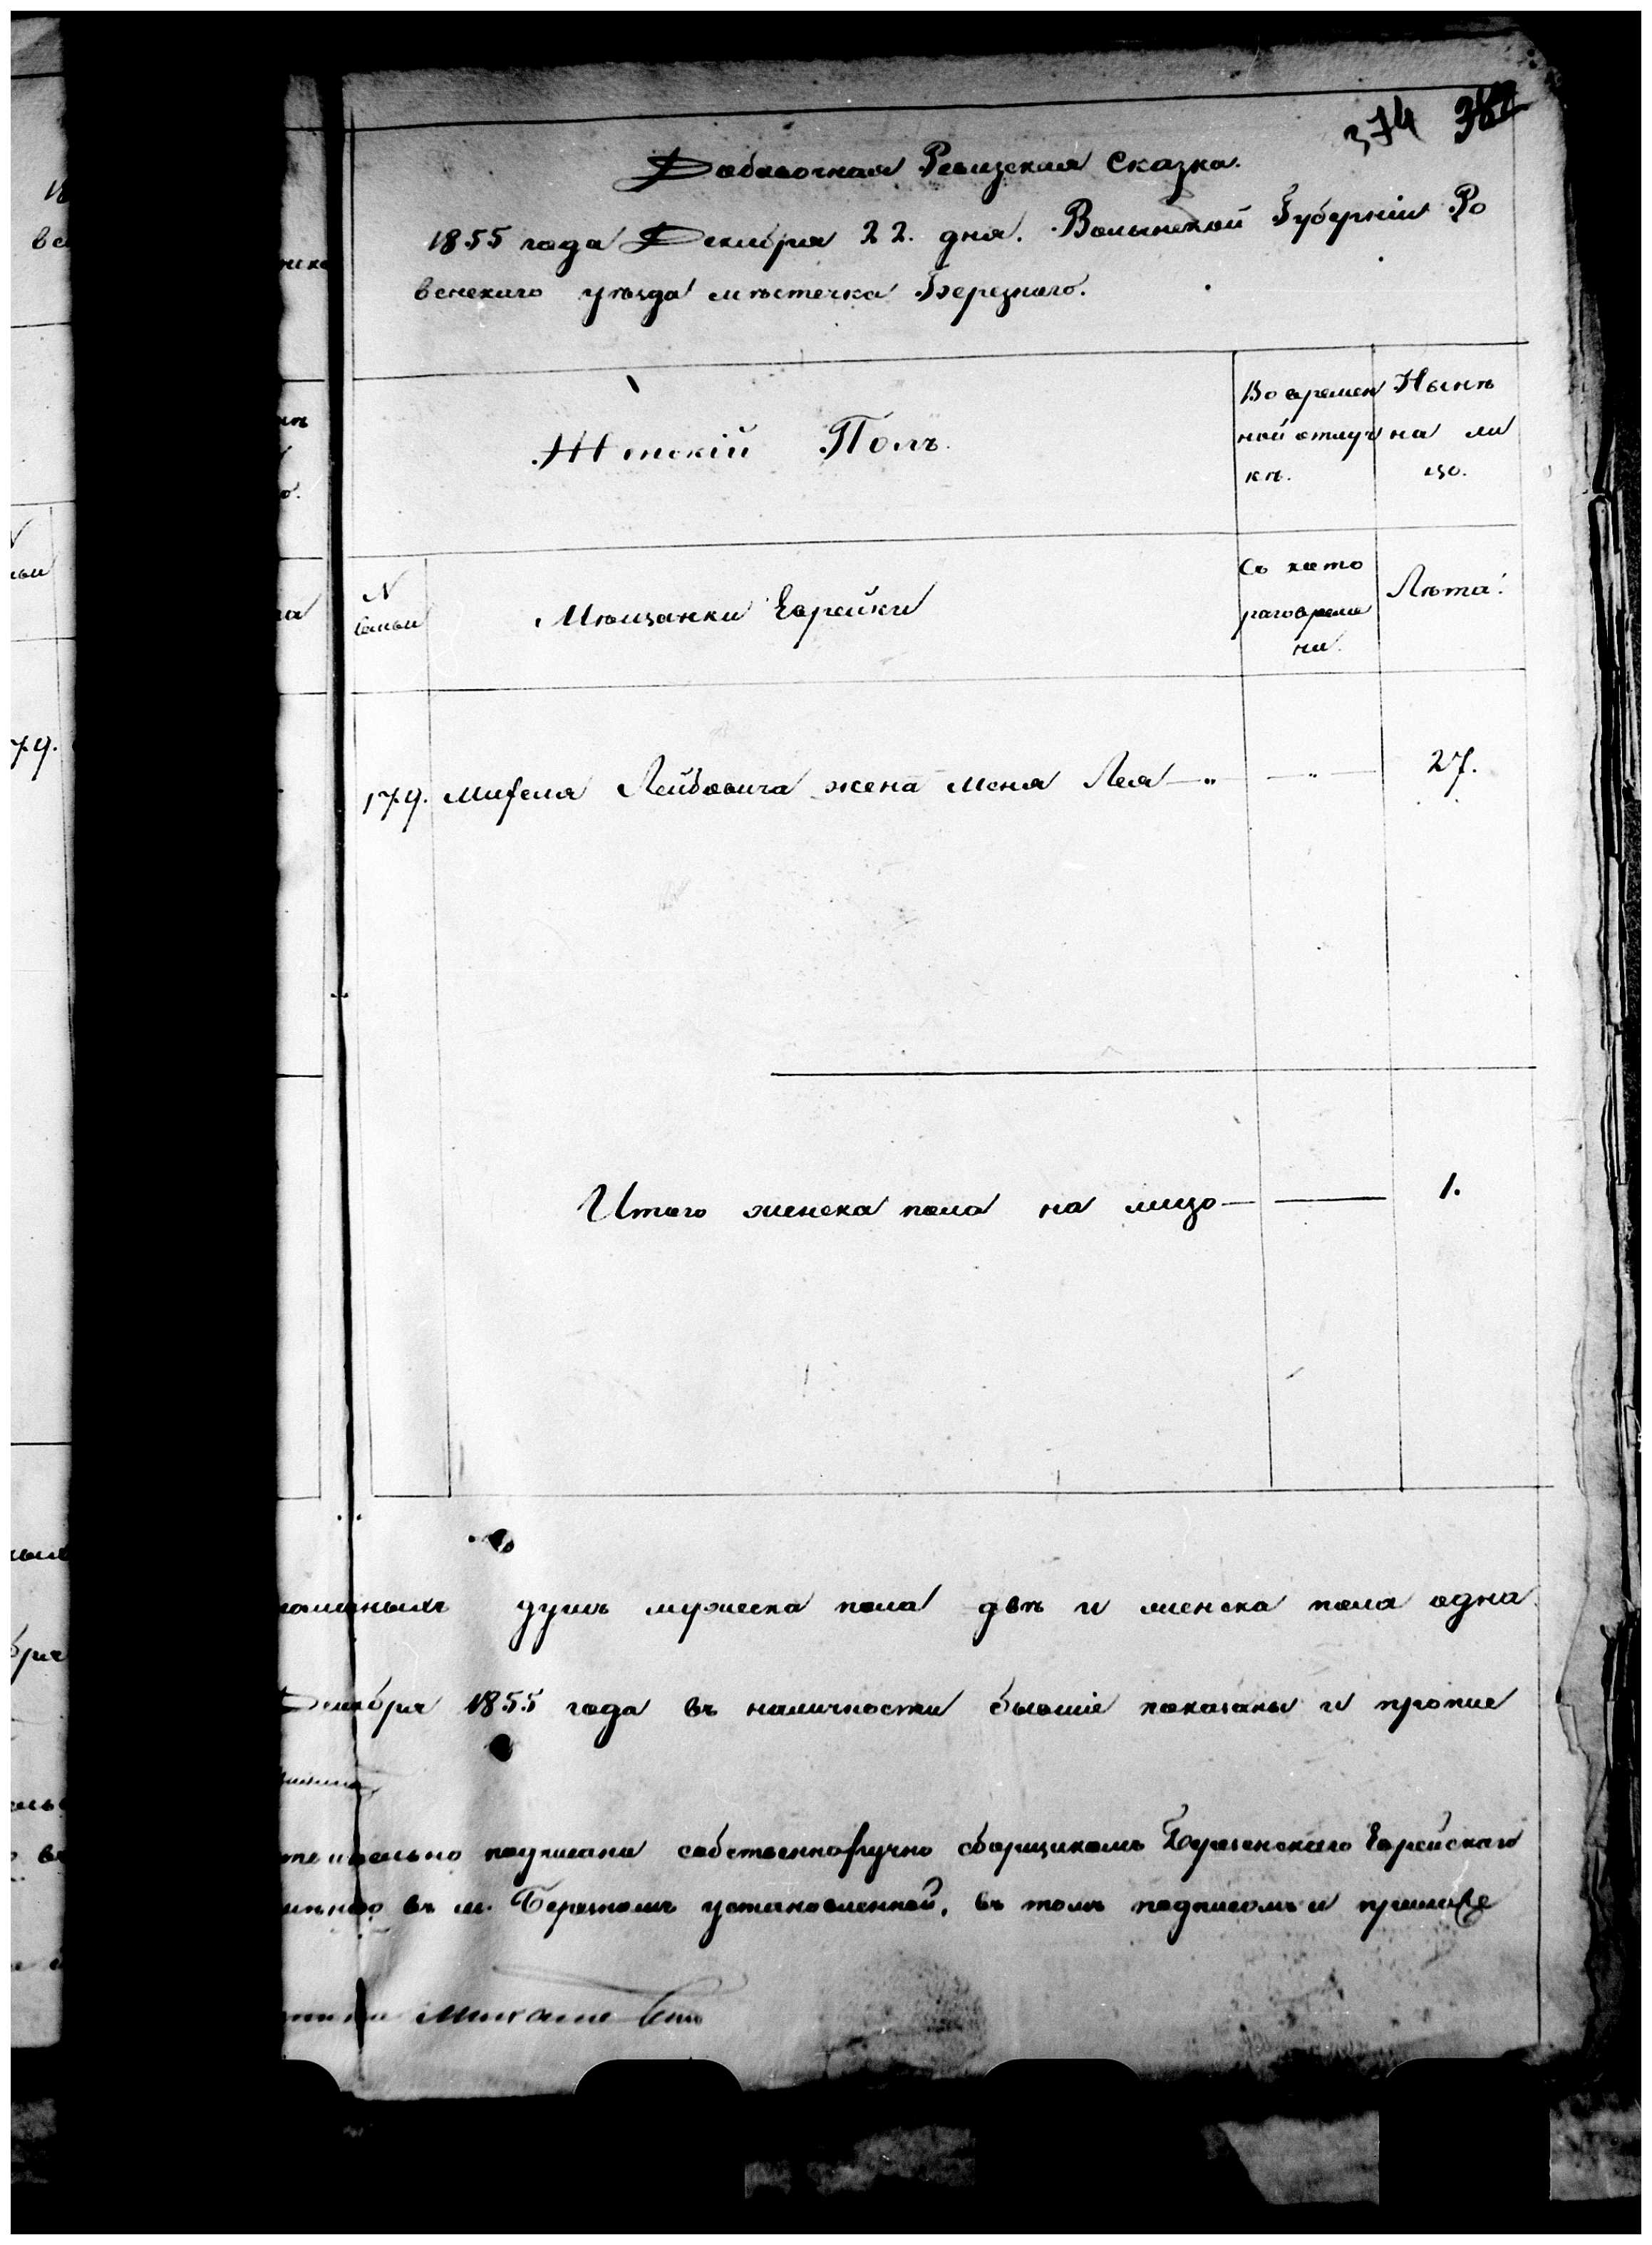 374 382
Добавочная Ревизская Сказка.
1855 года Декабря 22. дня. Волынской Губерніи Ро
венскаго уѣзда мѣстечка Березнаго.
Женскій Полъ.
Во времен
ной отлуч
кѣ.
Нынѣ
на ли
цо.
N
семьи
Мѣщанки Еврейки
Съ кото
раго време
ни.
Лѣта.
179. Лейбовича жена Меня Лея — " — " — 27.
Итого женска пола на лицо — — 1.
душъ мужеска пола двѣ и женска пола одна
Декабря 1855 года въ наличности бывшіе показаны и пропис
подписана собственноручно сборщикомъ Еврейскаго
въ м. Березномъ установленной, въ томъ подписомъ и